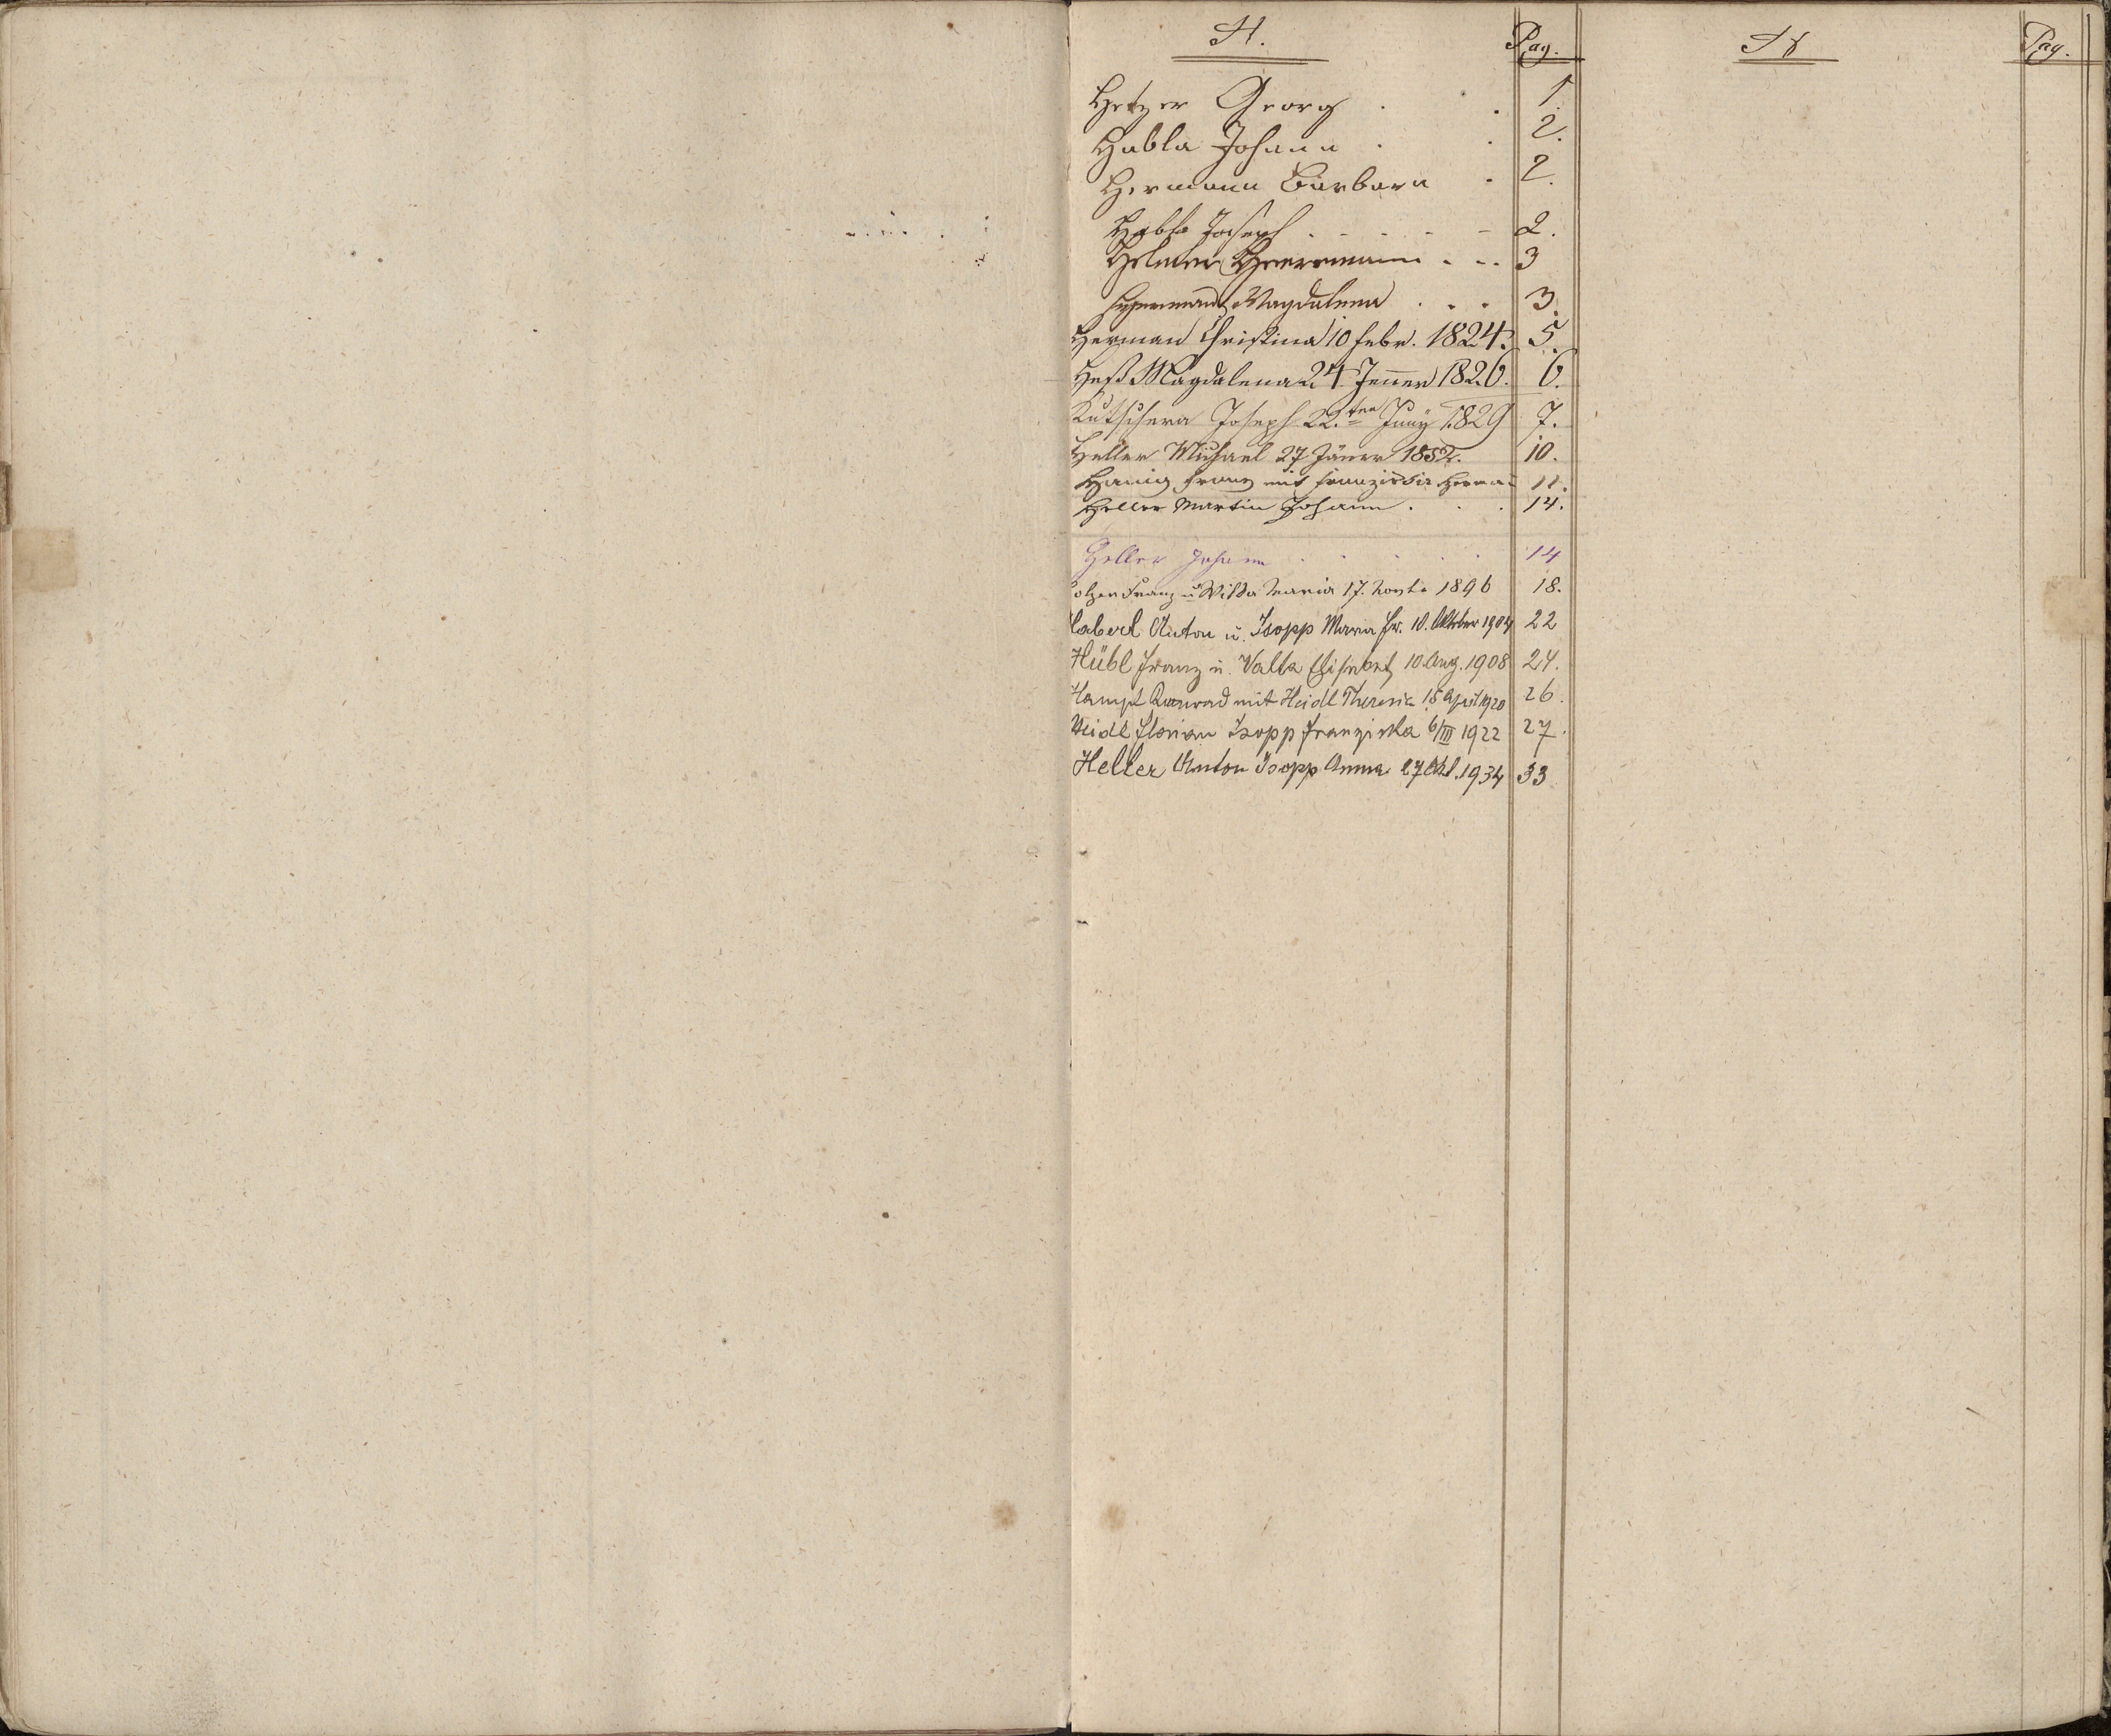 H. Pag. H Pag.
Hetzer Georg . . . 1.
Habla Johann . . 2.
Hermann Barbara . 2.
Habla Joseph . . . . . 2.
Helmer Herrmann . . . 3
Magdalena . . . 3.
Herman Christina 10 Febr. 1824. 5.
Heß Magdalena 24 Jenner 1826. 6.
Kutschera Joseph 22.ten Juny 1829 7.
Heller Michael 27 Jäner 1852. 10.
Hanig Franz mit Franziska Herman 11.
Heller Martin Johann . . . 14.
Heller Johann . . . . . 14
olzer Franz u. Maria 17. Novb. 1896 18.
Haberl Anton u. Isopp Maria Fr. 10. Oktober 1904 22
Hübl Franz u. Valta Elisabet 10 Aug. 1908 24.
Hampl Konrad mit Heidl Theresia 15 April 1920 26.
Heidl Florian Isopp Franziska 6/III 1922 27.
Heller Anton Isopp Anna 27 Okt. 1934 33